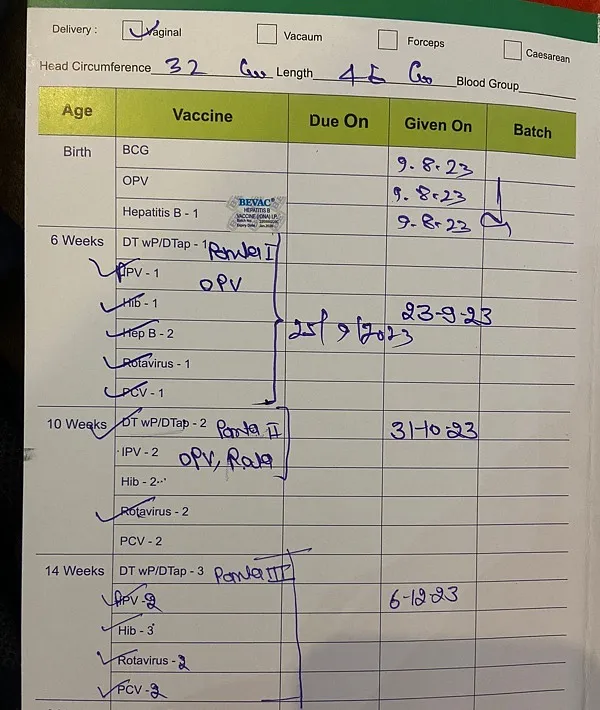 Delivery : Vaginal Vacaum Forceps Caesarean
Head Circumference 32 Cm Length 45 Cm Blood Group
Age Vaccine Due On Given On Batch
Birth BCG 9.8.23
OPV 9.8.23
Hepatitis B - 1 BEVAC HEPATITIS B VACCINE (rDNA) I.P. 9.8.23
6 Weeks DT wP/DTap - 1 Penta I
IPV - 1 OPV
Hib - 1 23-9-23
Hep B - 2 25/9/2023
Rotavirus - 1
PCV - 1
10 Weeks DT wP/DTap - 2 Penta II 31-10-23
IPV - 2 OPV, Rota
Hib - 2
Rotavirus - 2
PCV - 2
14 Weeks DT wP/DTap - 3 Penta III
IPV - 2 6-12-23
Hib - 3
Rotavirus - 2
PCV - 2